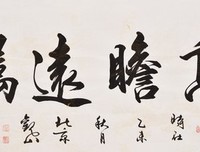 高瞻遠矚
時在
乙未
秋月
北京